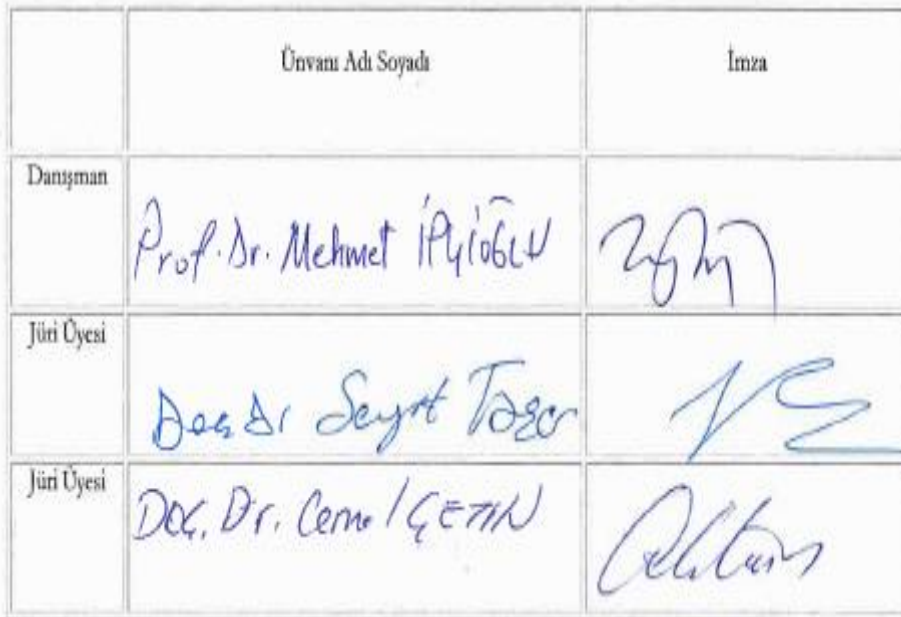 Ünvanı Adı Soyadı İmza
Danışman
Prof. Dr. Mehmet İPÇİOĞLU
Jüri Üyesi
Doç Dr Seyit
Jüri Üyesi
Doç. Dr. Cemal ÇETİN